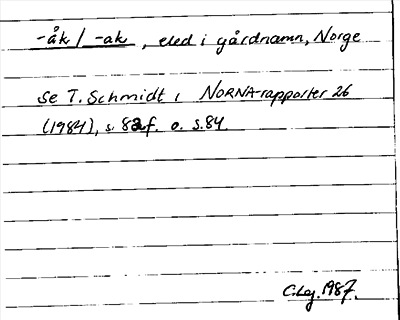 -åk / -ak, eled i gårdnamn, Norge
Se T. Schmidt i NORNA-rapporter 26
(1984), s. 82f. o. s.84.
1987.